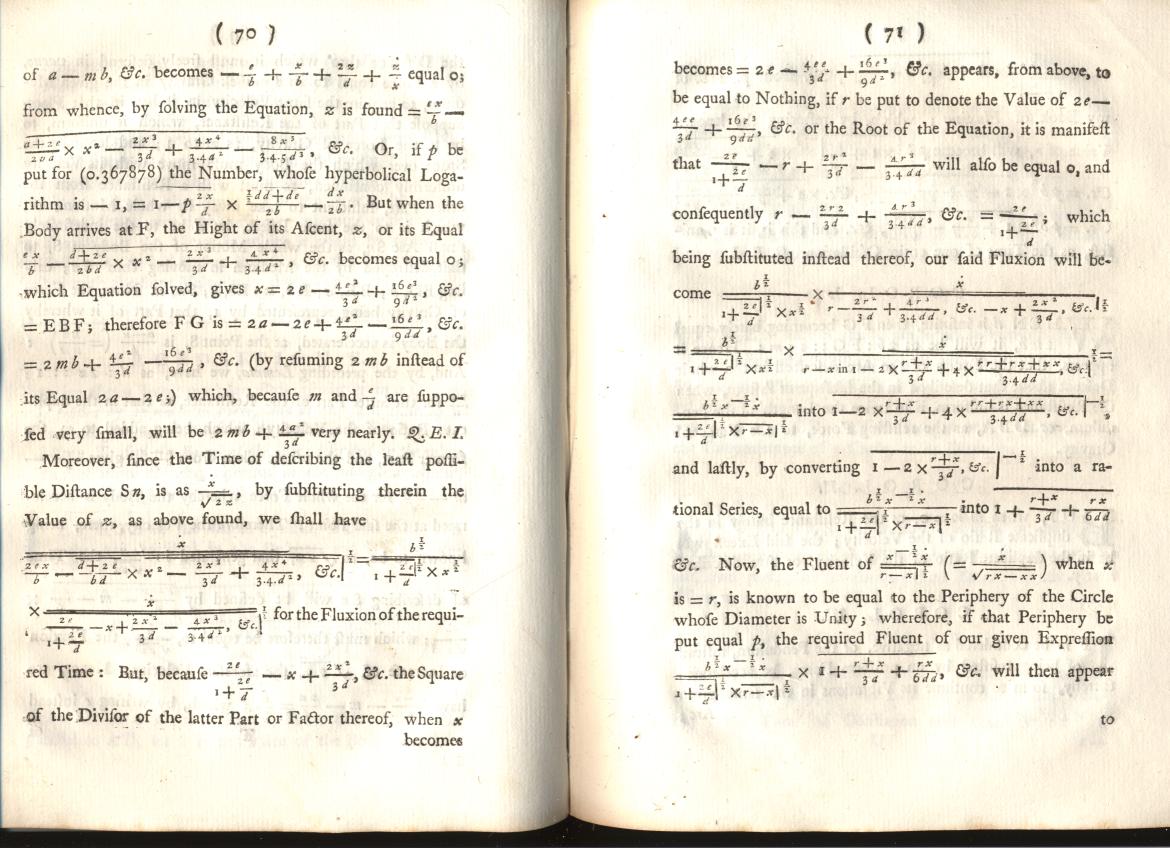 ( 70 )
of a — mb, &c. becomes — e/b + x/b + 2z/d + ż/ẋ equal 0;
from whence, by ſolving the Equation, z is found = ex/b —
× x² — 2x³/3d + 4x⁴/3.4d² — 8x⁵/3.4.5d³, &c. Or, if p be
put for (0.367878) the Number, whoſe hyperbolical Loga-
rithm is — 1, = 1—p 2x/d × ½dd+de/2b — dx/2b. But when the
Body arrives at F, the Hight of its Aſcent, z, or its Equal
ex/b — d+2e/2bd × x² — 2x³/3d + 4x⁴/3.4d², &c. becomes equal 0;
which Equation ſolved, gives x = 2e — 4e²/3d + 16e³/9d², &c.
= EBF; therefore FG is = 2a—2e+ 4e²/3d — 16e³/9dd, &c.
= 2mb + 4e²/3d — 16e³/9dd, &c. (by reſuming 2mb inſtead of
its Equal 2a—2e;) which, becauſe m and e/d are ſuppo-
ſed very ſmall, will be 2mb + 4a²/3d very nearly. Q. E. I.
Moreover, ſince the Time of deſcribing the leaſt poſſi-
ble Diſtance Sn, is as ẋ/√2z, by ſubſtituting therein the
Value of z, as above found, we ſhall have
ẋ / 2ex/b — d+2e/bd × x² — 2x³/3d + 4x⁴/3.4.d², &c.|½ = b½ / 1+2e/d|½ × x½
× ẋ / 2e/1+2e/d — x + 2x²/3d — 4x³/3.4d², &c.|½ for the Fluxion of the requi-
red Time: But, becauſe 2e/1+2e/d — x + 2x²/3d, &c. the Square
of the Diviſor of the latter Part or Factor thereof, when x
becomes
( 71 )
becomes = 2e — 4ee/3d + 16e³/9d², &c. appears, from above, to
be equal to Nothing, if r be put to denote the Value of 2e—
4ee/3d + 16e³/9dd, &c. or the Root of the Equation, it is manifeſt
that 2e/1+2e/d — r + 2r²/3d — 4r³/3.4dd will alſo be equal 0, and
conſequently r — 2r2/3d + 4r³/3.4dd, &c. = 2e/1+2e/d; which
being ſubſtituted inſtead thereof, our ſaid Fluxion will be-
come b½ / 1+2e/d|½ × x½ × ẋ / r — 2r²/3d + 4r³/3.4dd, &c. — x + 2x²/3d, &c.|½
= b½ / 1+2e/d|½ × x½ × ẋ / r—x in 1 — 2× r+x/3d + 4× rr+rx+xx/3.4dd, &c.|½ =
b½ x—½ ẋ / 1+2e/d|½ × r—x|½ into 1—2× r+x/3d + 4× rr+rx+xx/3.4dd, &c.|—½,
and laſtly, by converting 1—2× r+x/3d, &c.|—½ into a ra-
tional Series, equal to b½ x—½ ẋ / 1+2e/d|½ × r—x|½ into 1 + r+x/3d + rx/6dd
&c. Now, the Fluent of x—½ ẋ / r—x|½ (= ẋ/√rx—xx) when x
is = r, is known to be equal to the Periphery of the Circle
whoſe Diameter is Unity; wherefore, if that Periphery be
put equal p, the required Fluent of our given Expreſſion
b½ x—½ ẋ / 1+2e/d|½ × r—x|½ × 1 + r+x/3d + rx/6dd, &c. will then appear
to